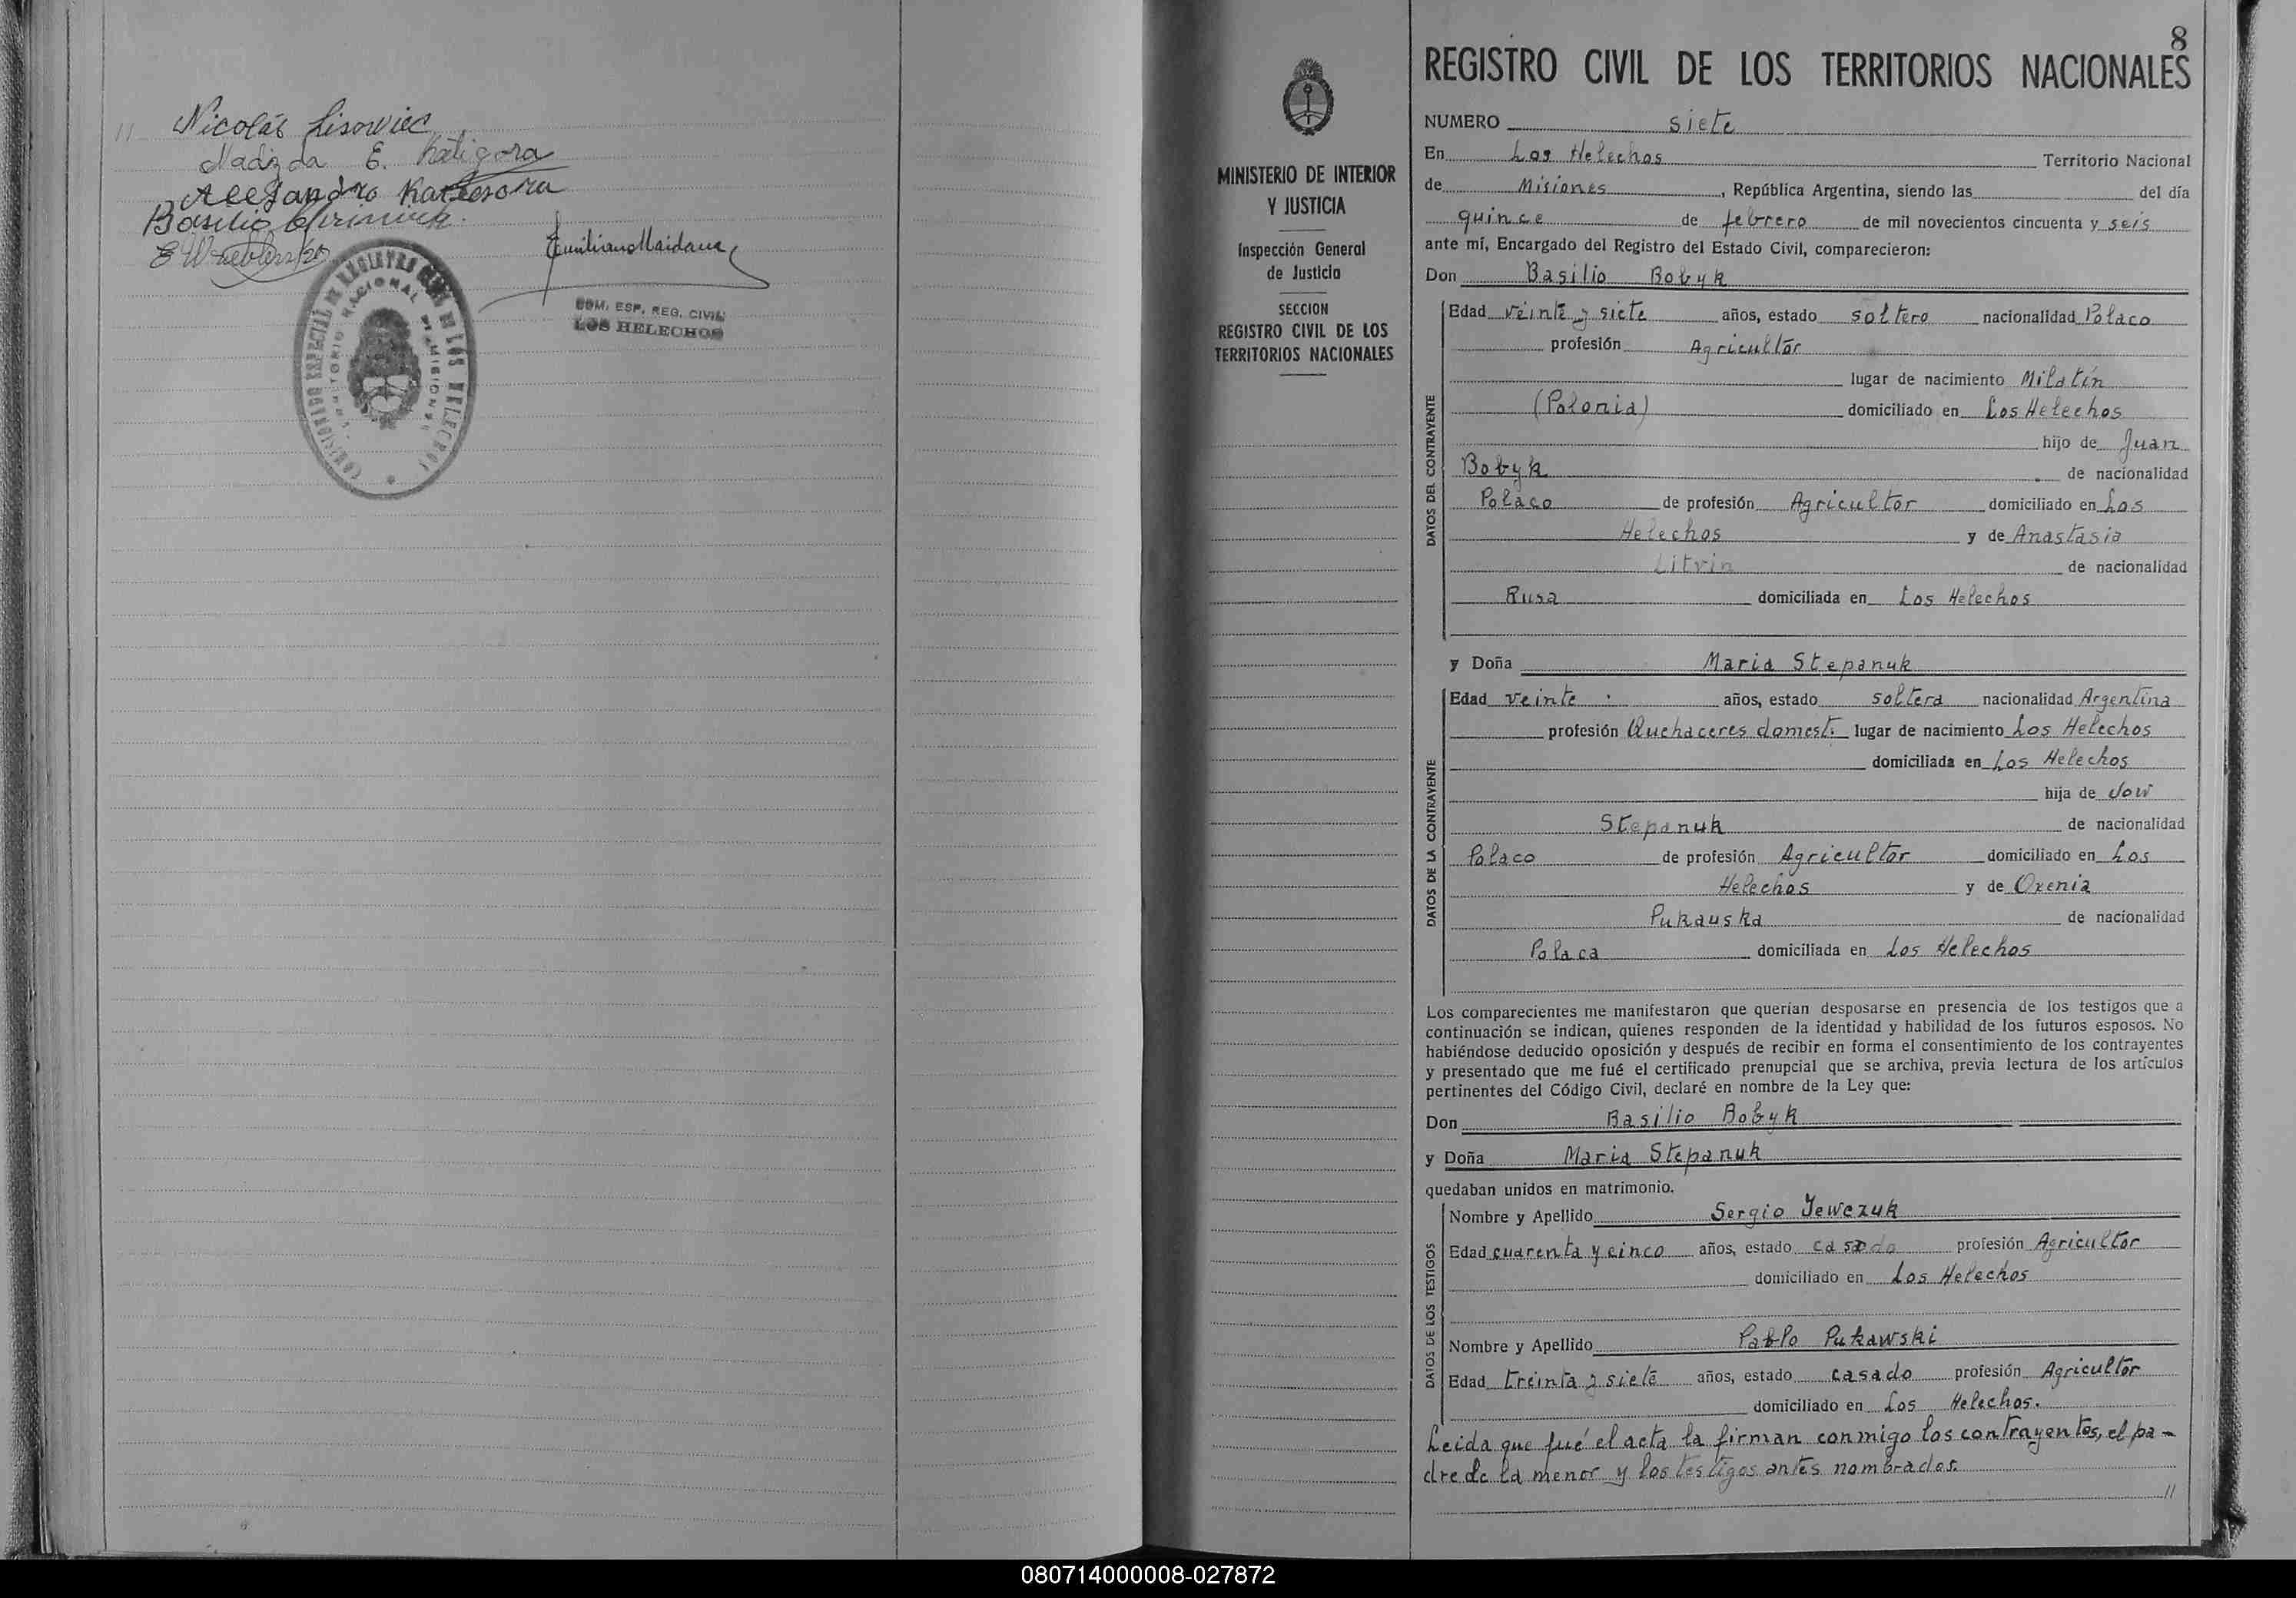 // Nicolás Lisowiec
Nadizda E.
Alejandro
Basilio
Emiliano Maidana
COM. ESP. REG. CIVIL
LOS HELECHOS
8
REGISTRO CIVIL DE LOS TERRITORIOS NACIONALES
MINISTERIO DE INTERIOR
Y JUSTICIA
Inspección General
de Justicia
SECCION
REGISTRO CIVIL DE LOS
TERRITORIOS NACIONALES
NUMERO siete
En Los Helechos Territorio Nacional
de Misiones, República Argentina, siendo las del día
quince de febrero de mil novecientos cincuenta y seis
ante mí, Encargado del Registro del Estado Civil, comparecieron:
Don Basilio Bobyk
DATOS DEL CONTRAYENTE
Edad veinte y siete años, estado soltero nacionalidad Polaco
profesión Agricultor
lugar de nacimiento Milatín
(Polonia) domiciliado en Los Helechos
hijo de Juan
Bobyk de nacionalidad
Polaco de profesión Agricultor domiciliado en Los
Helechos y de Anastasia
Litvin de nacionalidad
Rusa domiciliada en Los Helechos
y Doña Maria Stepanuk
DATOS DE LA CONTRAYENTE
Edad veinte años, estado soltera nacionalidad Argentina
profesión Quehaceres domest. lugar de nacimiento Los Helechos
domiciliada en Los Helechos
hija de Jow
Stepanuk de nacionalidad
Polaco de profesión Agricultor domiciliado en Los
Helechos y de Oxenia
Pukauska de nacionalidad
Polaca domiciliada en Los Helechos
Los comparecientes me manifestaron que querían desposarse en presencia de los testigos que a
continuación se indican, quienes responden de la identidad y habilidad de los futuros esposos. No
habiéndose deducido oposición y después de recibir en forma el consentimiento de los contrayentes
y presentado que me fué el certificado prenupcial que se archiva, previa lectura de los artículos
pertinentes del Código Civil, declaré en nombre de la Ley que:
Don Basilio Bobyk
y Doña Maria Stepanuk
quedaban unidos en matrimonio.
DATOS DE LOS TESTIGOS
Nombre y Apellido Sergio Jewczuk
Edad cuarenta y cinco años, estado casado profesión Agricultor
domiciliado en Los Helechos
Nombre y Apellido Pablo Pukawski
Edad treinta y siete años, estado casado profesión Agricultor
domiciliado en Los Helechos.
Leida que fué el acta la firman conmigo los contrayentes, el pa-
dre de la menor y los testigos antes nombrados.
//
080714000008-027872